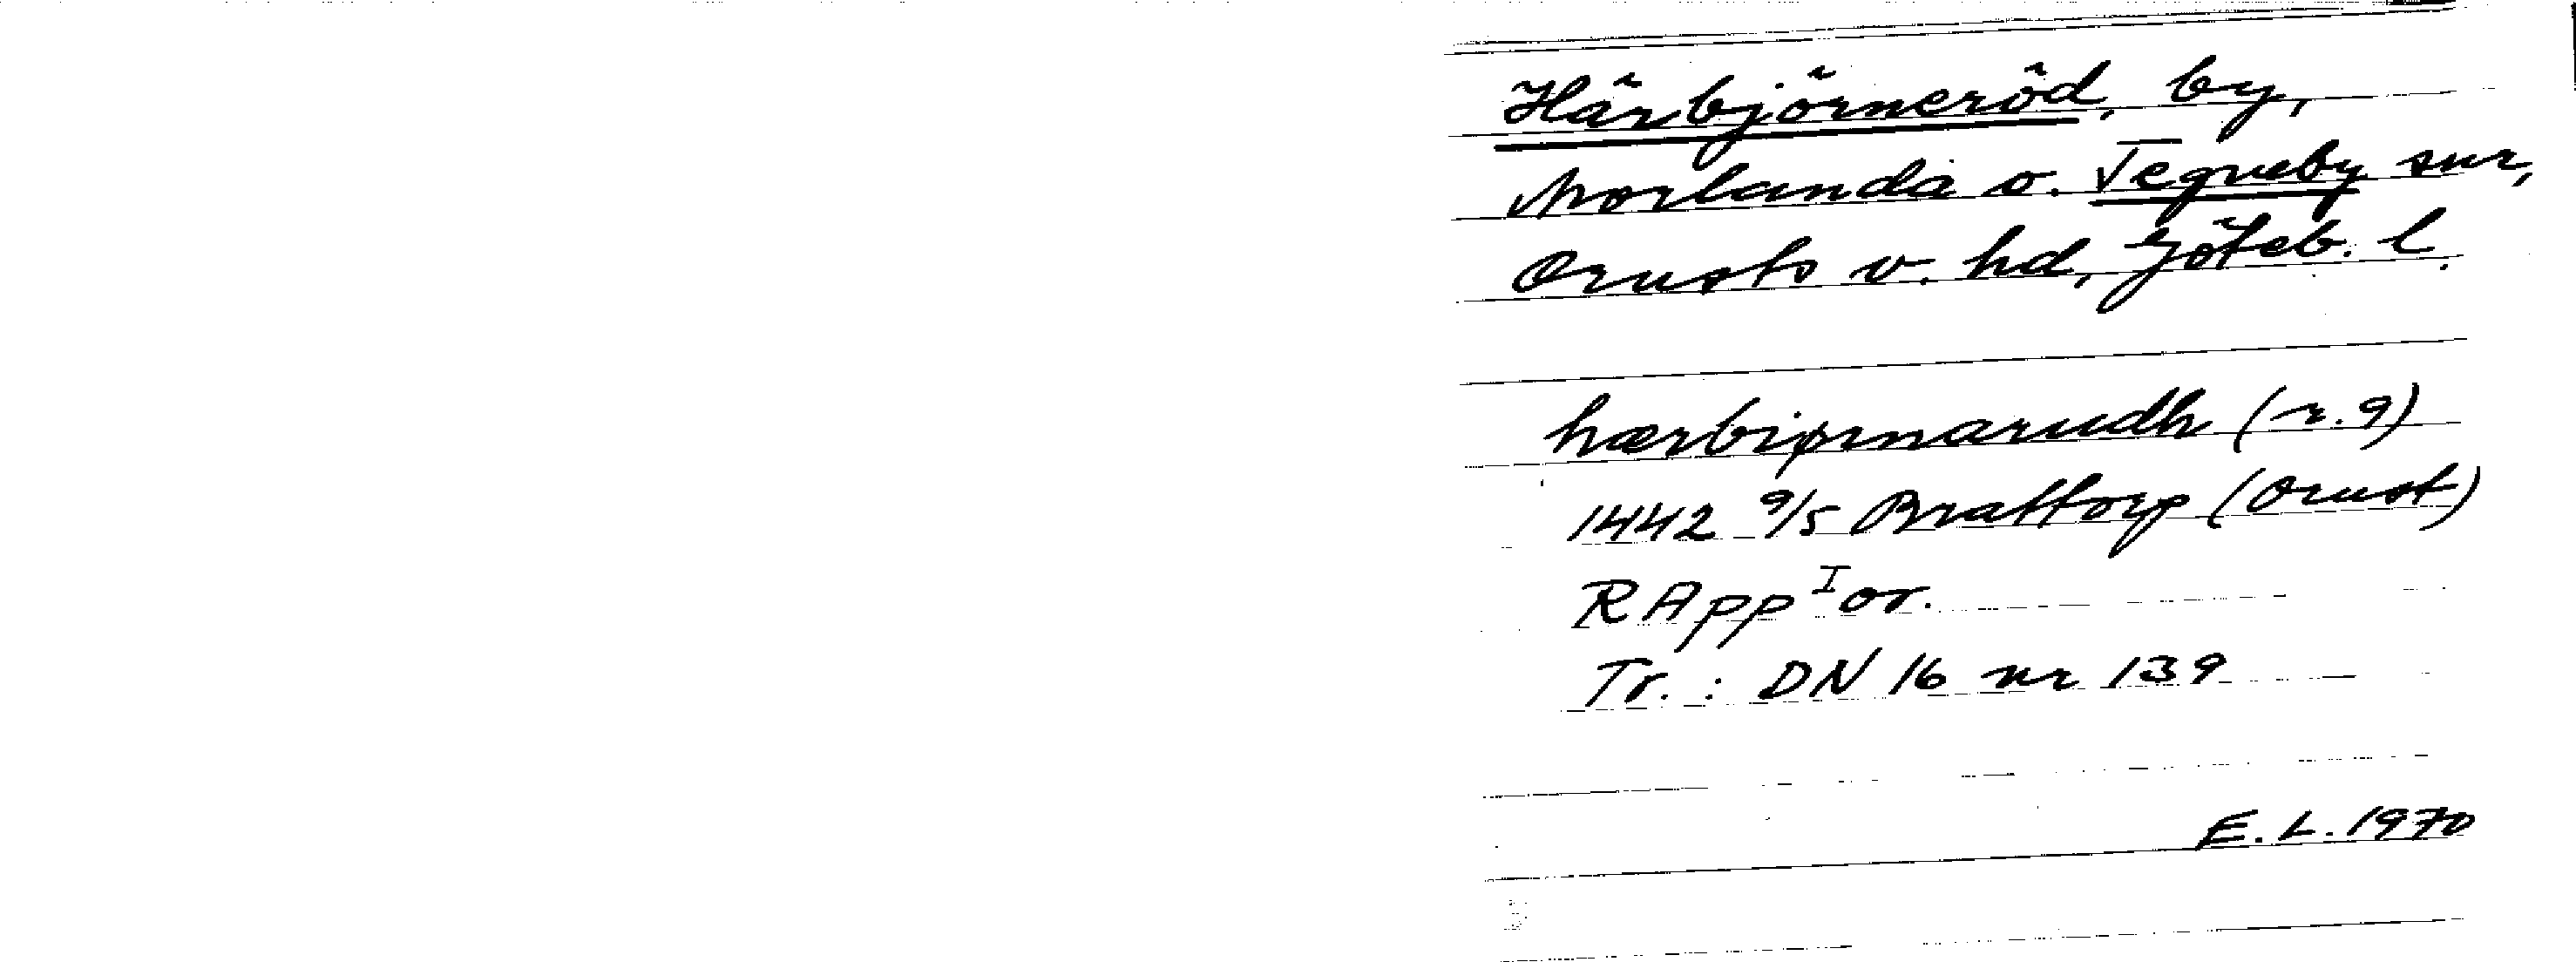 Härbjörneröd, by,
Morlanda o. Tegneby snr,
Orusts v. hd, Göteb. l.
hærbiørnarudh (r. 9)
1442 9/5 Brattorp (Orust)
RApp I or.
Tr.: DN 16 nr 139
E. L. 1970